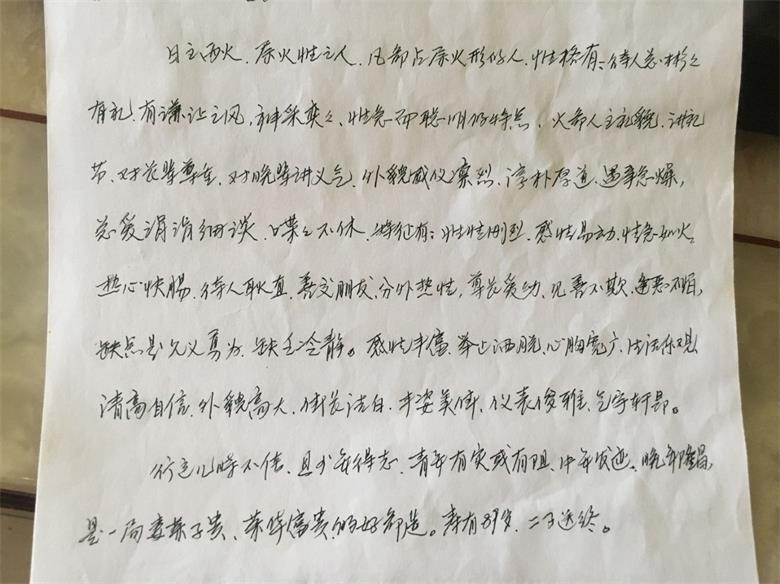 日主丙火、属火性之人，凡命占属火形的人，性格有：待人总彬彬
有礼，有谦让之风，神采奕奕、性急而聪明的特点，火命人主礼貌，讲礼
节、对长辈尊重，对晚辈讲义气，外貌威仪凛烈，淳朴厚道，遇事急燥，
总爱涓涓细谈，喋喋不休，特征有：性情刚烈，感性易动，性急如火。
热心快肠，待人耿直，善交朋友，分外热性，尊老爱幼，见善不欺，逢恶不怕，
缺点是见义勇为，缺乏冷静。感性丰富，举止洒脱，心胸宽广，生活乐观
清高自信，外貌高大，体长洁白，丰姿美俊，仪表俊雅，气宇轩昂。
行运儿时不佳，且少年得志，青年有灾或有阻，中年发迹，晚年隆昌，
是一局妻荣子贵，荣华富贵的好命造。寿有89岁，二子送终。